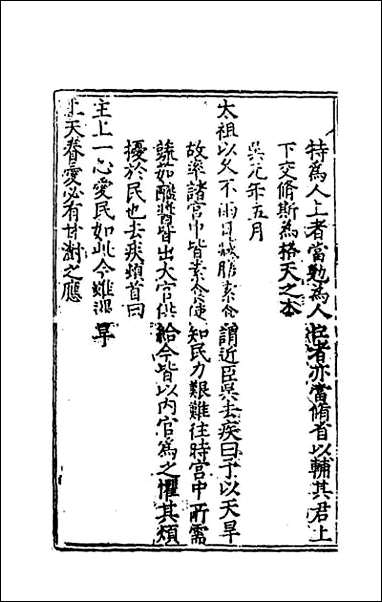 特為人上者當勉為人臣者亦當脩省以輔其君上
下交脩斯為格天之本
吳元年五月
太祖以久不雨日減膳素食謂近臣吳去疾曰予以天旱
故率諸宮中皆素食使知民力艱難往時宮中所需
蔬茹醯醬皆出大官供給今皆以內官為之懼其煩
擾於民也去疾頓首曰
主上一心愛民如此今雖旱
上天眷愛必有甘澍之應